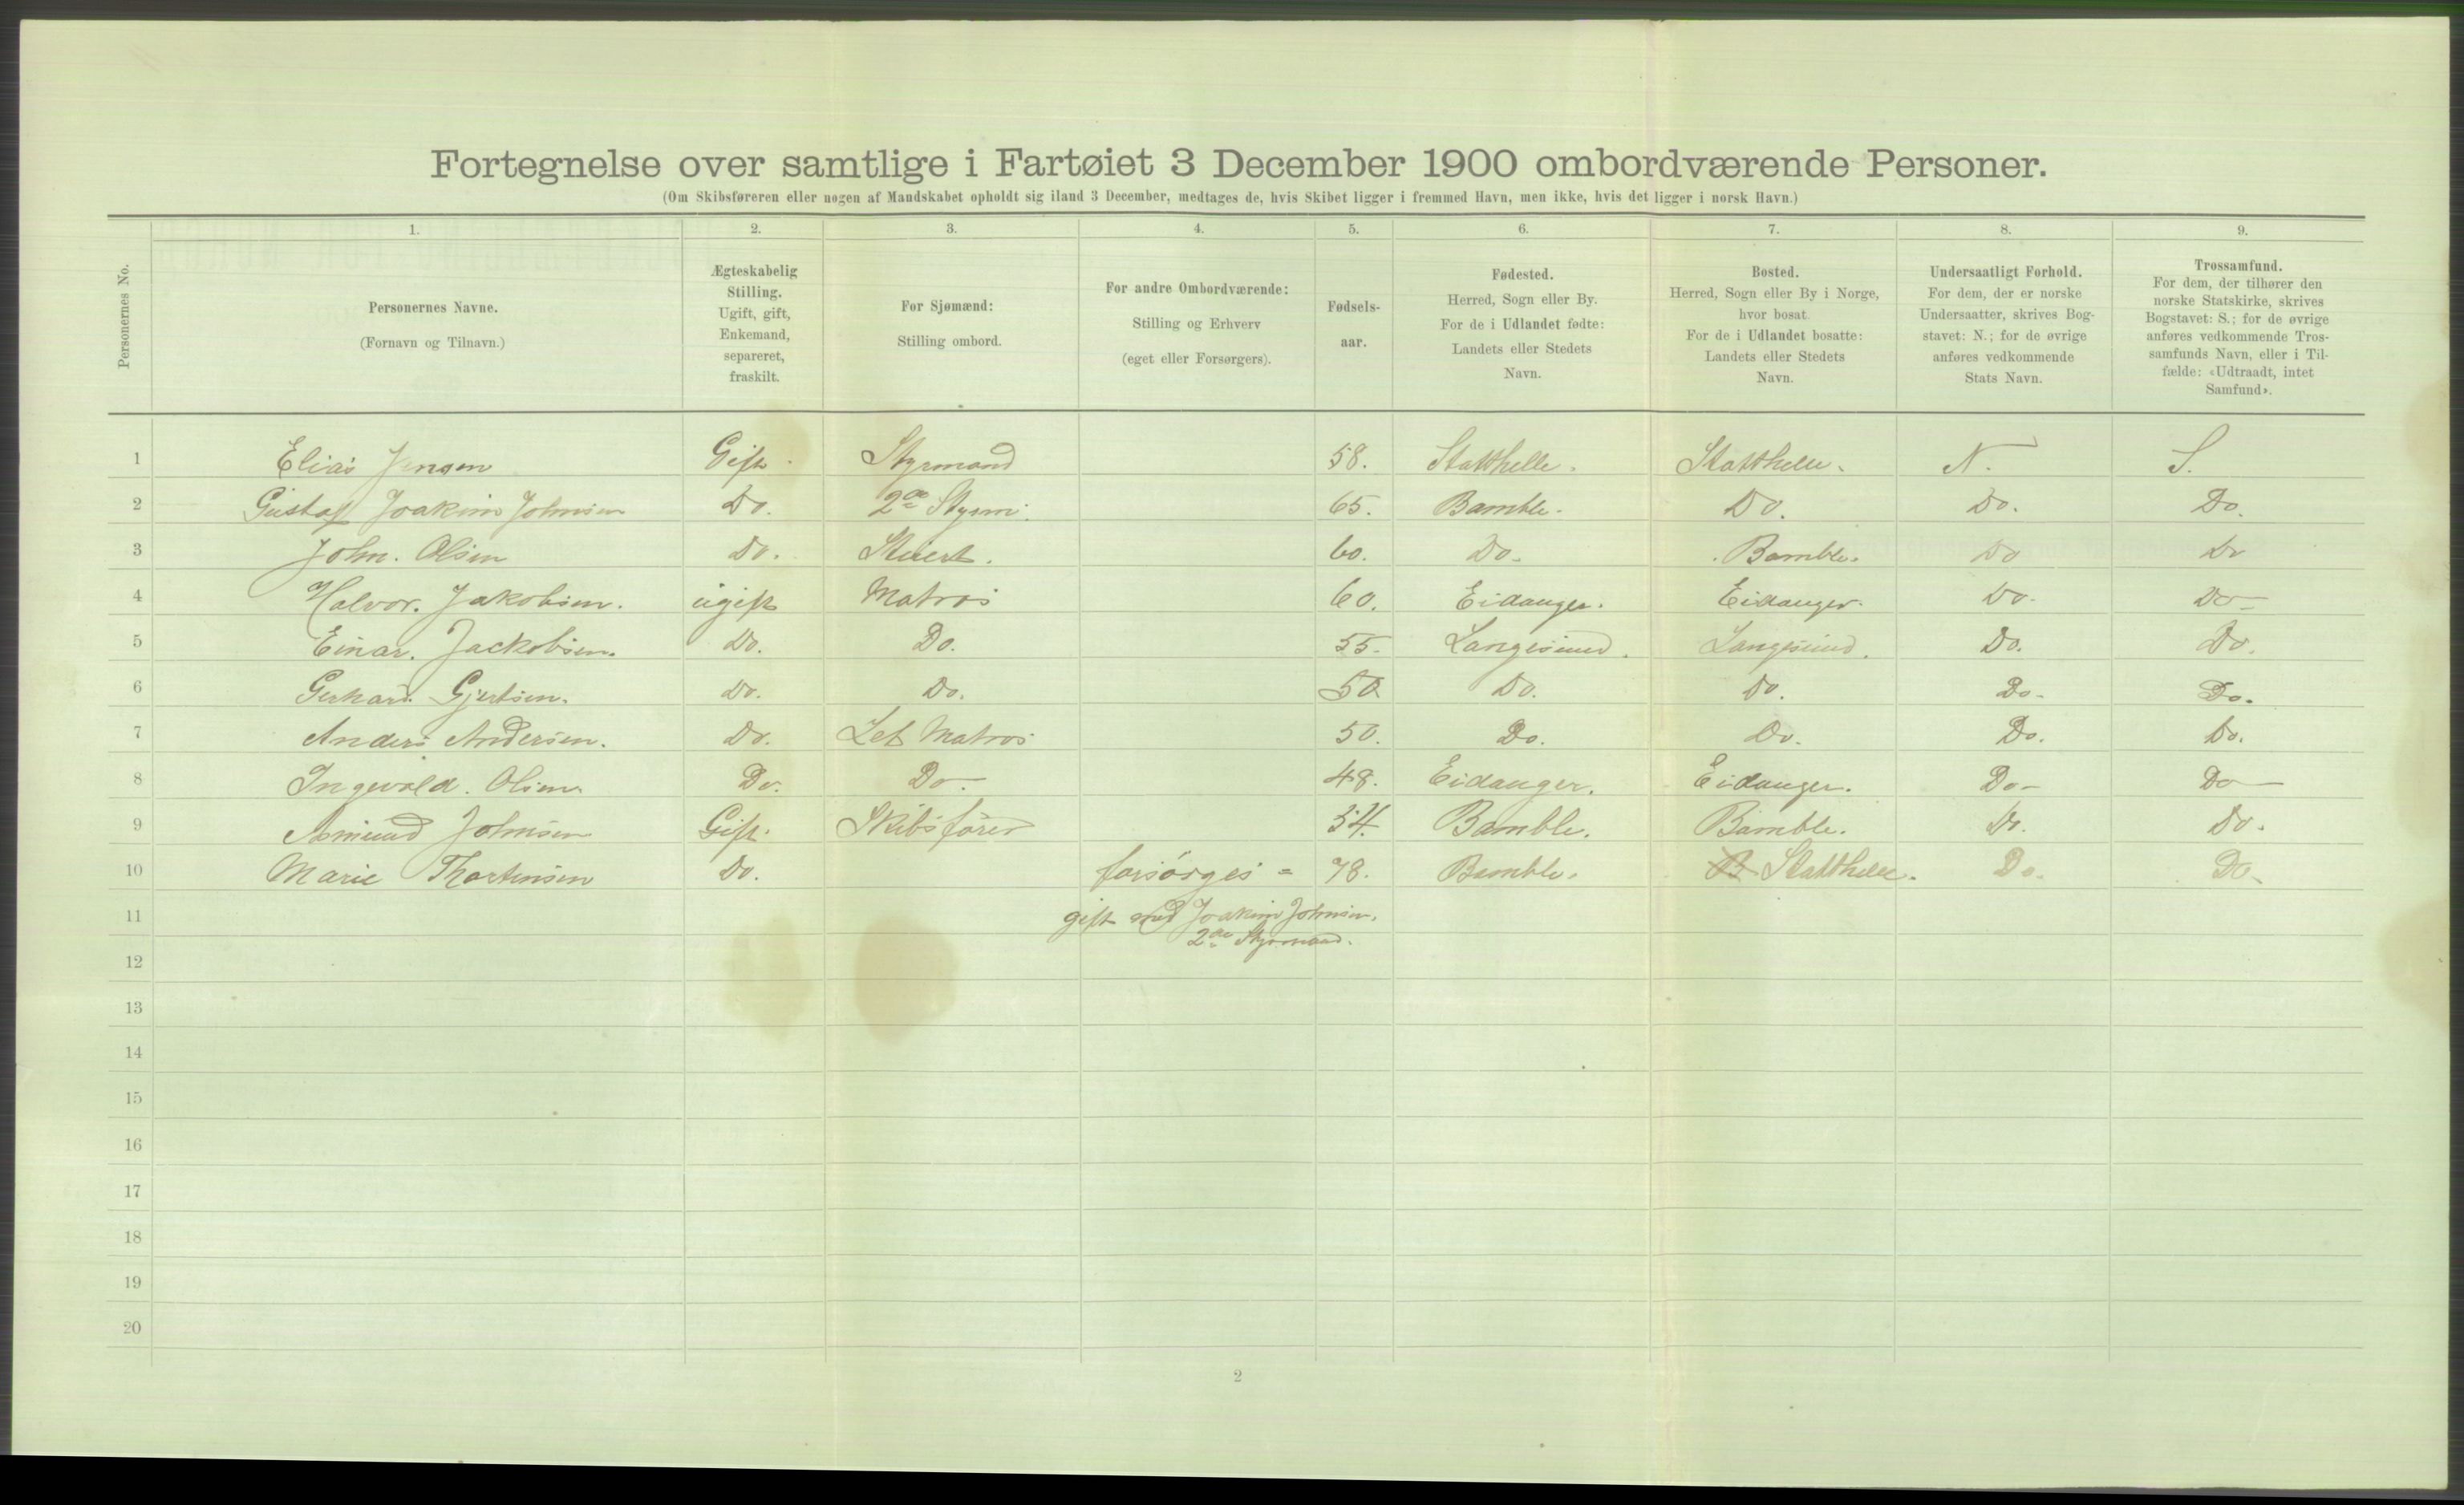 Fortegnelse over samtlige i Fartøiet 3 December 1900 ombordværende Personer.
(Om Skibsføreren eller nogen af Mandskabet opholdt sig iland 3 December, medtages de, hvis Skibet ligger i fremmed Havn, men ikke, hvis det ligger i norsk Havn.)
Personernes No.
1. 2. 3. 4. 5. 6. 7. 8. 9.
Personernes Navne.
(Fornavn og Tilnavn.)
Ægteskabelig
Stilling.
Ugift, gift,
Enkemand,
separeret,
fraskilt.
For Sjømænd:
Stilling ombord.
For andre Ombordværende:
Stilling og Erhverv
(eget eller Forsørgers).
Fødsels-
aar.
Fødested.
Herred, Sogn eller By.
For de i Udlandet fødte:
Landets eller Stedets
Navn.
Bosted.
Herred, Sogn eller By i Norge,
hvor bosat.
For de i Udlandet bosatte:
Landets eller Stedets
Navn.
Undersaatligt Forhold.
For dem, der er norske
Undersaatter, skrives Bog-
stavet: N.; for de øvrige
anføres vedkommende
Stats Navn.
Trossamfund.
For dem, der tilhører den
norske Statskirke, skrives
Bogstavet: S.; for de øvrige
anføres vedkommende Tros-
samfunds Navn, eller i Til-
fælde: «Udtraadt, intet
Samfund».
1 Elias Jensen Gift. Styrmand 58. Statthelle. Statthelle. N. S.
2 Gustaf Joakim Johnsen Do. 2de Styrm. 65. Bamble. Do. Do. Do.
3 John. Olsen Do. Stuert. 60. Do. Bamble. Do Do
4 Halvor. Jakobsen. ugift Matros 60. Eidanger. Eidanger. Do. Do
5 Einar. Jackobsen. Do. Do. 55. Langesund. Langesund. Do. Do.
6 Gerhard. Gjertsen. Do. Do. 50 Do. Do. Do. Do.
7 Anders Andersen. Do. Let Matros 50. Do. Do. Do. Do.
8 Ingevald. Olsen. Do. Do. 48. Eidanger. Eidanger. Do. Do
9 Asmund Johnsen Gift. Skibsfører 54. Bamble. Bamble. Do. Do.
10 Marie Thortensen Do. forsörges = 78. Bamble. Statthelle. Do. Do.
11 gift med Joakim Johnsen.
2de Styrmand.
12
13
14
15
16
17
18
19
20
2